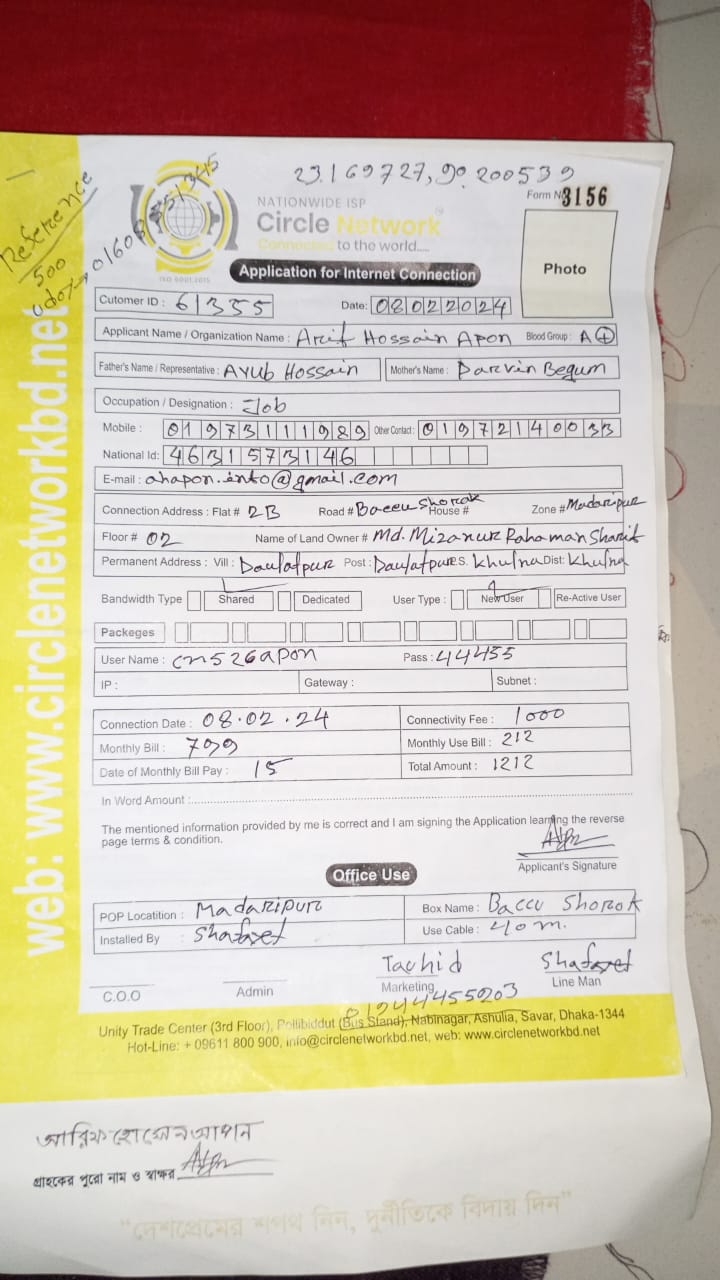 23.169727, 90.200539
Reference
500
NATIONWIDE ISP
Form No 3156
Circle Network
Connected to the world.....
ISO 9001:2015
Application for Internet Connection
Photo
Cutomer ID : 61355 Date: 08022024
Applicant Name / Organization Name : Arif Hossain Apon Blood Group : A+
Father's Name / Representative : Ayub Hossain Mother's Name : Parvin Begum
Occupation / Designation : Job
Mobile : 01973111989 Other Contact : 01972140033
National Id: 4631573146
E-mail : ahapon.info@gmail.com
Connection Address : Flat # 2B Road # Baccu Shorok House # Zone # Madaripur
Floor # 02 Name of Land Owner # Md. Mizanur Rahaman Sharif
Permanent Address : Vill : Daulatpur Post : Daulatpur P.S. Khulna Dist: Khulna
Bandwidth Type Shared Dedicated User Type : New User Re-Active User
Packeges
User Name : cn526apon Pass : 44455
IP : Gateway : Subnet :
Connection Date : 08.02.24 Connectivity Fee : 1000
Monthly Bill : 799 Monthly Use Bill : 212
Date of Monthly Bill Pay : 15 Total Amount : 1212
In Word Amount :
The mentioned information provided by me is correct and I am signing the Application learning the reverse
page terms & condition.
Applicant's Signature
Office Use
POP Locatition : Madaripur Box Name : Baccu Shorok
Installed By : Shafaet Use Cable : 40 m.
Tachid Shafaet
C.O.O Admin Marketing Line Man
01944455203
Unity Trade Center (3rd Floor), Pollibiddut (Bus Stand), Nabinagar, Ashulia, Savar, Dhaka-1344
Hot-Line: + 09611 800 900, info@circlenetworkbd.net, web: www.circlenetworkbd.net
web: www.circlenetworkbd.net
আরিফ হোসেন আপন
গ্রাহকের পুরো নাম ও স্বাক্ষর
"দেশপ্রেমের শপথ নিন, দুর্নীতিকে বিদায় দিন"